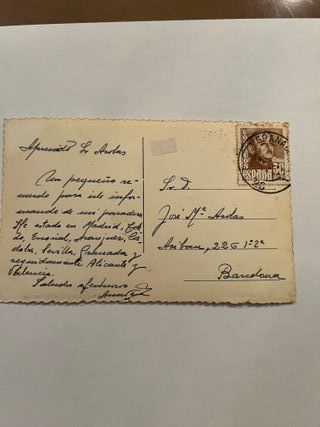 Apreciado Sr Ardas
Un pequeño re-
cuerdo para ir
mando de un paradero
He estado en Madrid, Tole-
do, Escorial, Aranjuez, Cór-
doba, Sevilla, Granada y
seguidamente Alicante y
Valencia.
Saludos afectuosos
Sr. D.
José Mª Ardas
Aribau, 226 1º 2ª
Barcelona
ESPAÑA